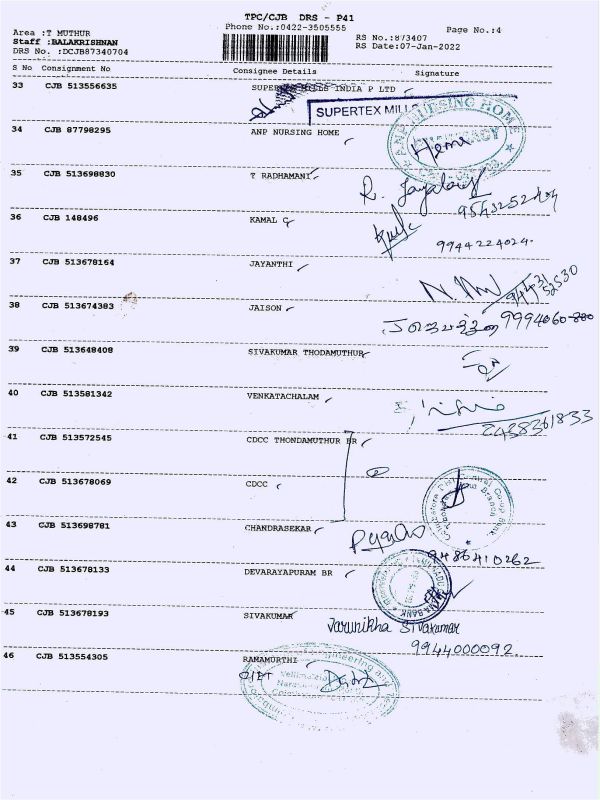 TPC/CJB DRS - P41
Phone No.:0422-3505555
Page No.:4
Area :T MUTHUR
Staff :BALAKRISHNAN
DRS No. :DCJB87340704
RS No.:873407
RS Date:07-Jan-2022
S No Consignment No Consignee Details Signature
33 CJB 513556635 SUPERTEX MILLS INDIA P LTD
SUPERTEX MILLS
34 CJB 87798295 ANP NURSING HOME
ANP NURSING HOME
Hema
35 CJB 513698830 T RADHAMANI
36 CJB 148496 KAMAL G
9944224024
37 CJB 513678164 JAYANTHI
38 CJB 513674383 JAISON
39 CJB 513648408 SIVAKUMAR THODAMUTHUR
40 CJB 513581342 VENKATACHALAM
2438361833
41 CJB 513572545 CDCC THONDAMUTHUR BR
42 CJB 513678069 CDCC
43 CJB 513698781 CHANDRASEKAR
9486410262
44 CJB 513678133 DEVARAYAPURAM BR
45 CJB 513678193 SIVAKUMAR
Varunikha Sivakumar
9944000092
46 CJB 513554305 RAMAMURTHI